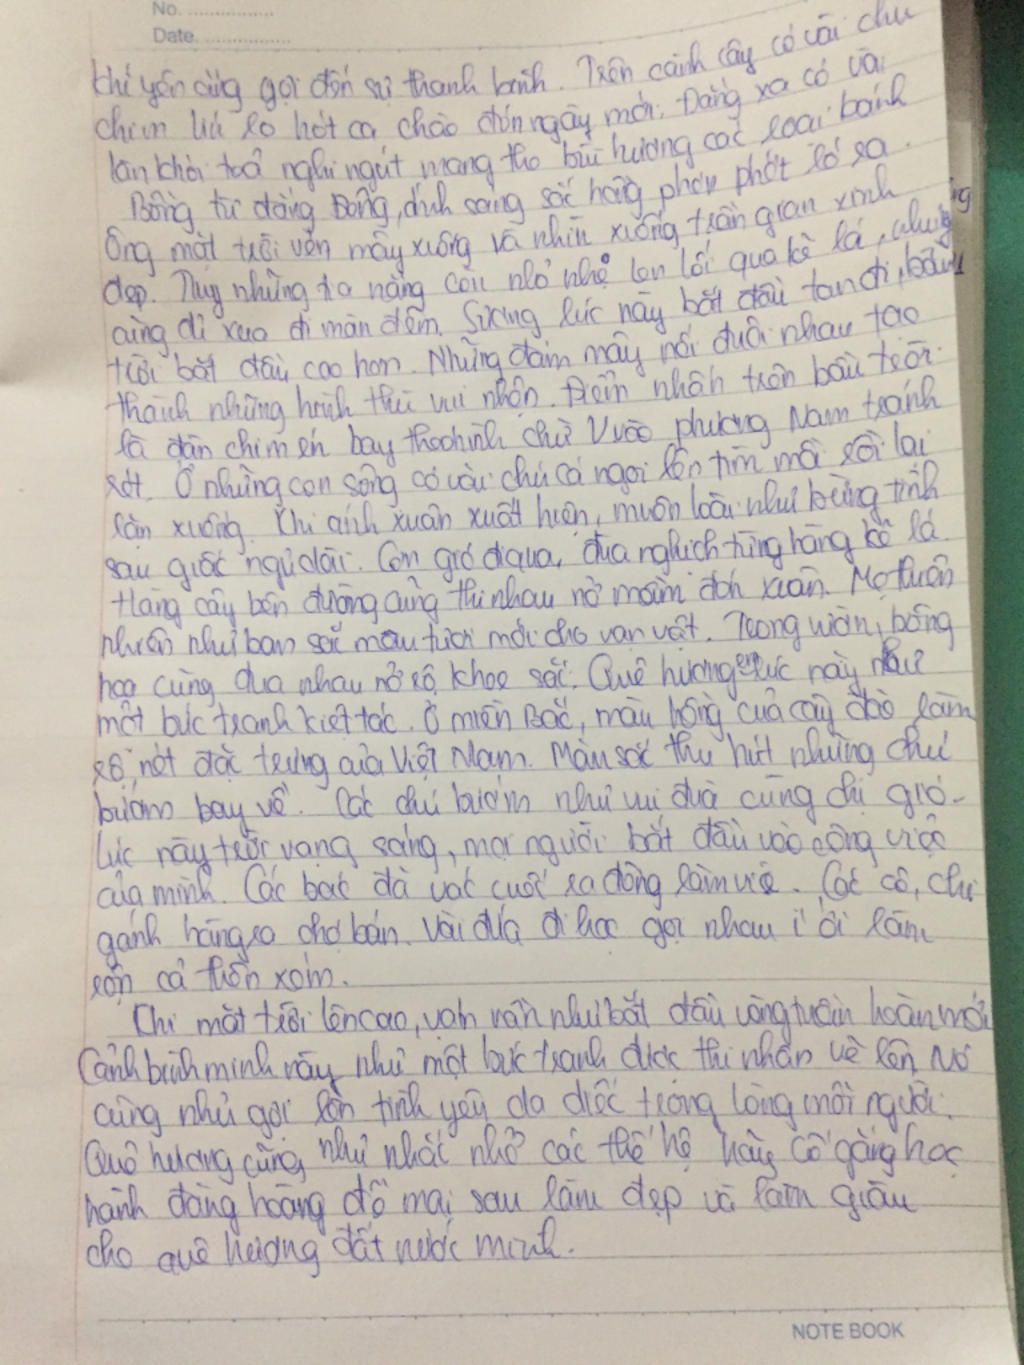 No. ................
Date. ................
khí yên cũng gọi đến sự thanh bình. Trên cành cây có vài chú
chim líu lo hót ca chào đón ngày mới. Đằng xa có vài
làn khói toả nghi ngút mang theo bùi hương các loại bánh
Bỗng từ đằng Đông, ánh sáng sắc hồng phơn phớt ló ra.
Ông mặt trời vén mây xuống và nhìn xuống trần gian xinh
đẹp. Tuy những tia nắng còn nhỏ nhẹ len lỏi qua kẽ lá, nhưng
cũng đi xua đi màn đêm. Sương lúc này bắt đầu tan đi, bầu
trời bắt đầu cao hơn. Những đám mây nối đuôi nhau tạo
thành những hình thù vui nhộn. Điểm nhấn trên bầu trời
là đàn chim én bay theo hình chữ V vào phương Nam tránh
rét. Ở những con sông có vài chú cá ngoi lên tìm mồi rồi lại
lặn xuống. Khi ánh xuân xuất hiện, muôn loài như bừng tỉnh
sau giấc ngủ dài. Cơn gió đi qua, đùa nghịch từng hàng kẽ lá.
Hàng cây bên đường cũng thi nhau nở mầm đón xuân. Mẹ thiên
nhiên như ban sắc màu tươi mới cho vạn vật. Trong vườn, bông
hoa cùng đua nhau nở rộ, khoe sắc. Quê hương em lúc này như
một bức tranh kiệt tác. Ở miền Bắc, màu hồng của cây đào làm
rõ nét đặc trưng của Việt Nam. Màu sắc thu hút những chú
bướm bay về. Các chú bướm như vui đùa cùng chị gió.
Lúc này trời vang sáng, mọi người bắt đầu vào công việc
của mình. Các bác đã vác cuốc ra đồng làm việc. Các cô, chị
gánh hàng ra chợ bán. Vài đứa đi học gọi nhau í ới làm
rộn cả thôn xóm.
Khi mặt trời lên cao, vạn vần như bắt đầu vòng tuần hoàn mới
Cảnh bình minh này như một bức tranh được thi nhân vẽ lên. Nó
cũng như gợi lên tình yêu da diết trong lòng mỗi người.
Quê hương cũng như nhắc nhở các thế hệ hãy cố gắng học
hành đàng hoàng để mai sau làm đẹp và làm giàu
cho quê hương đất nước mình.
NOTE BOOK